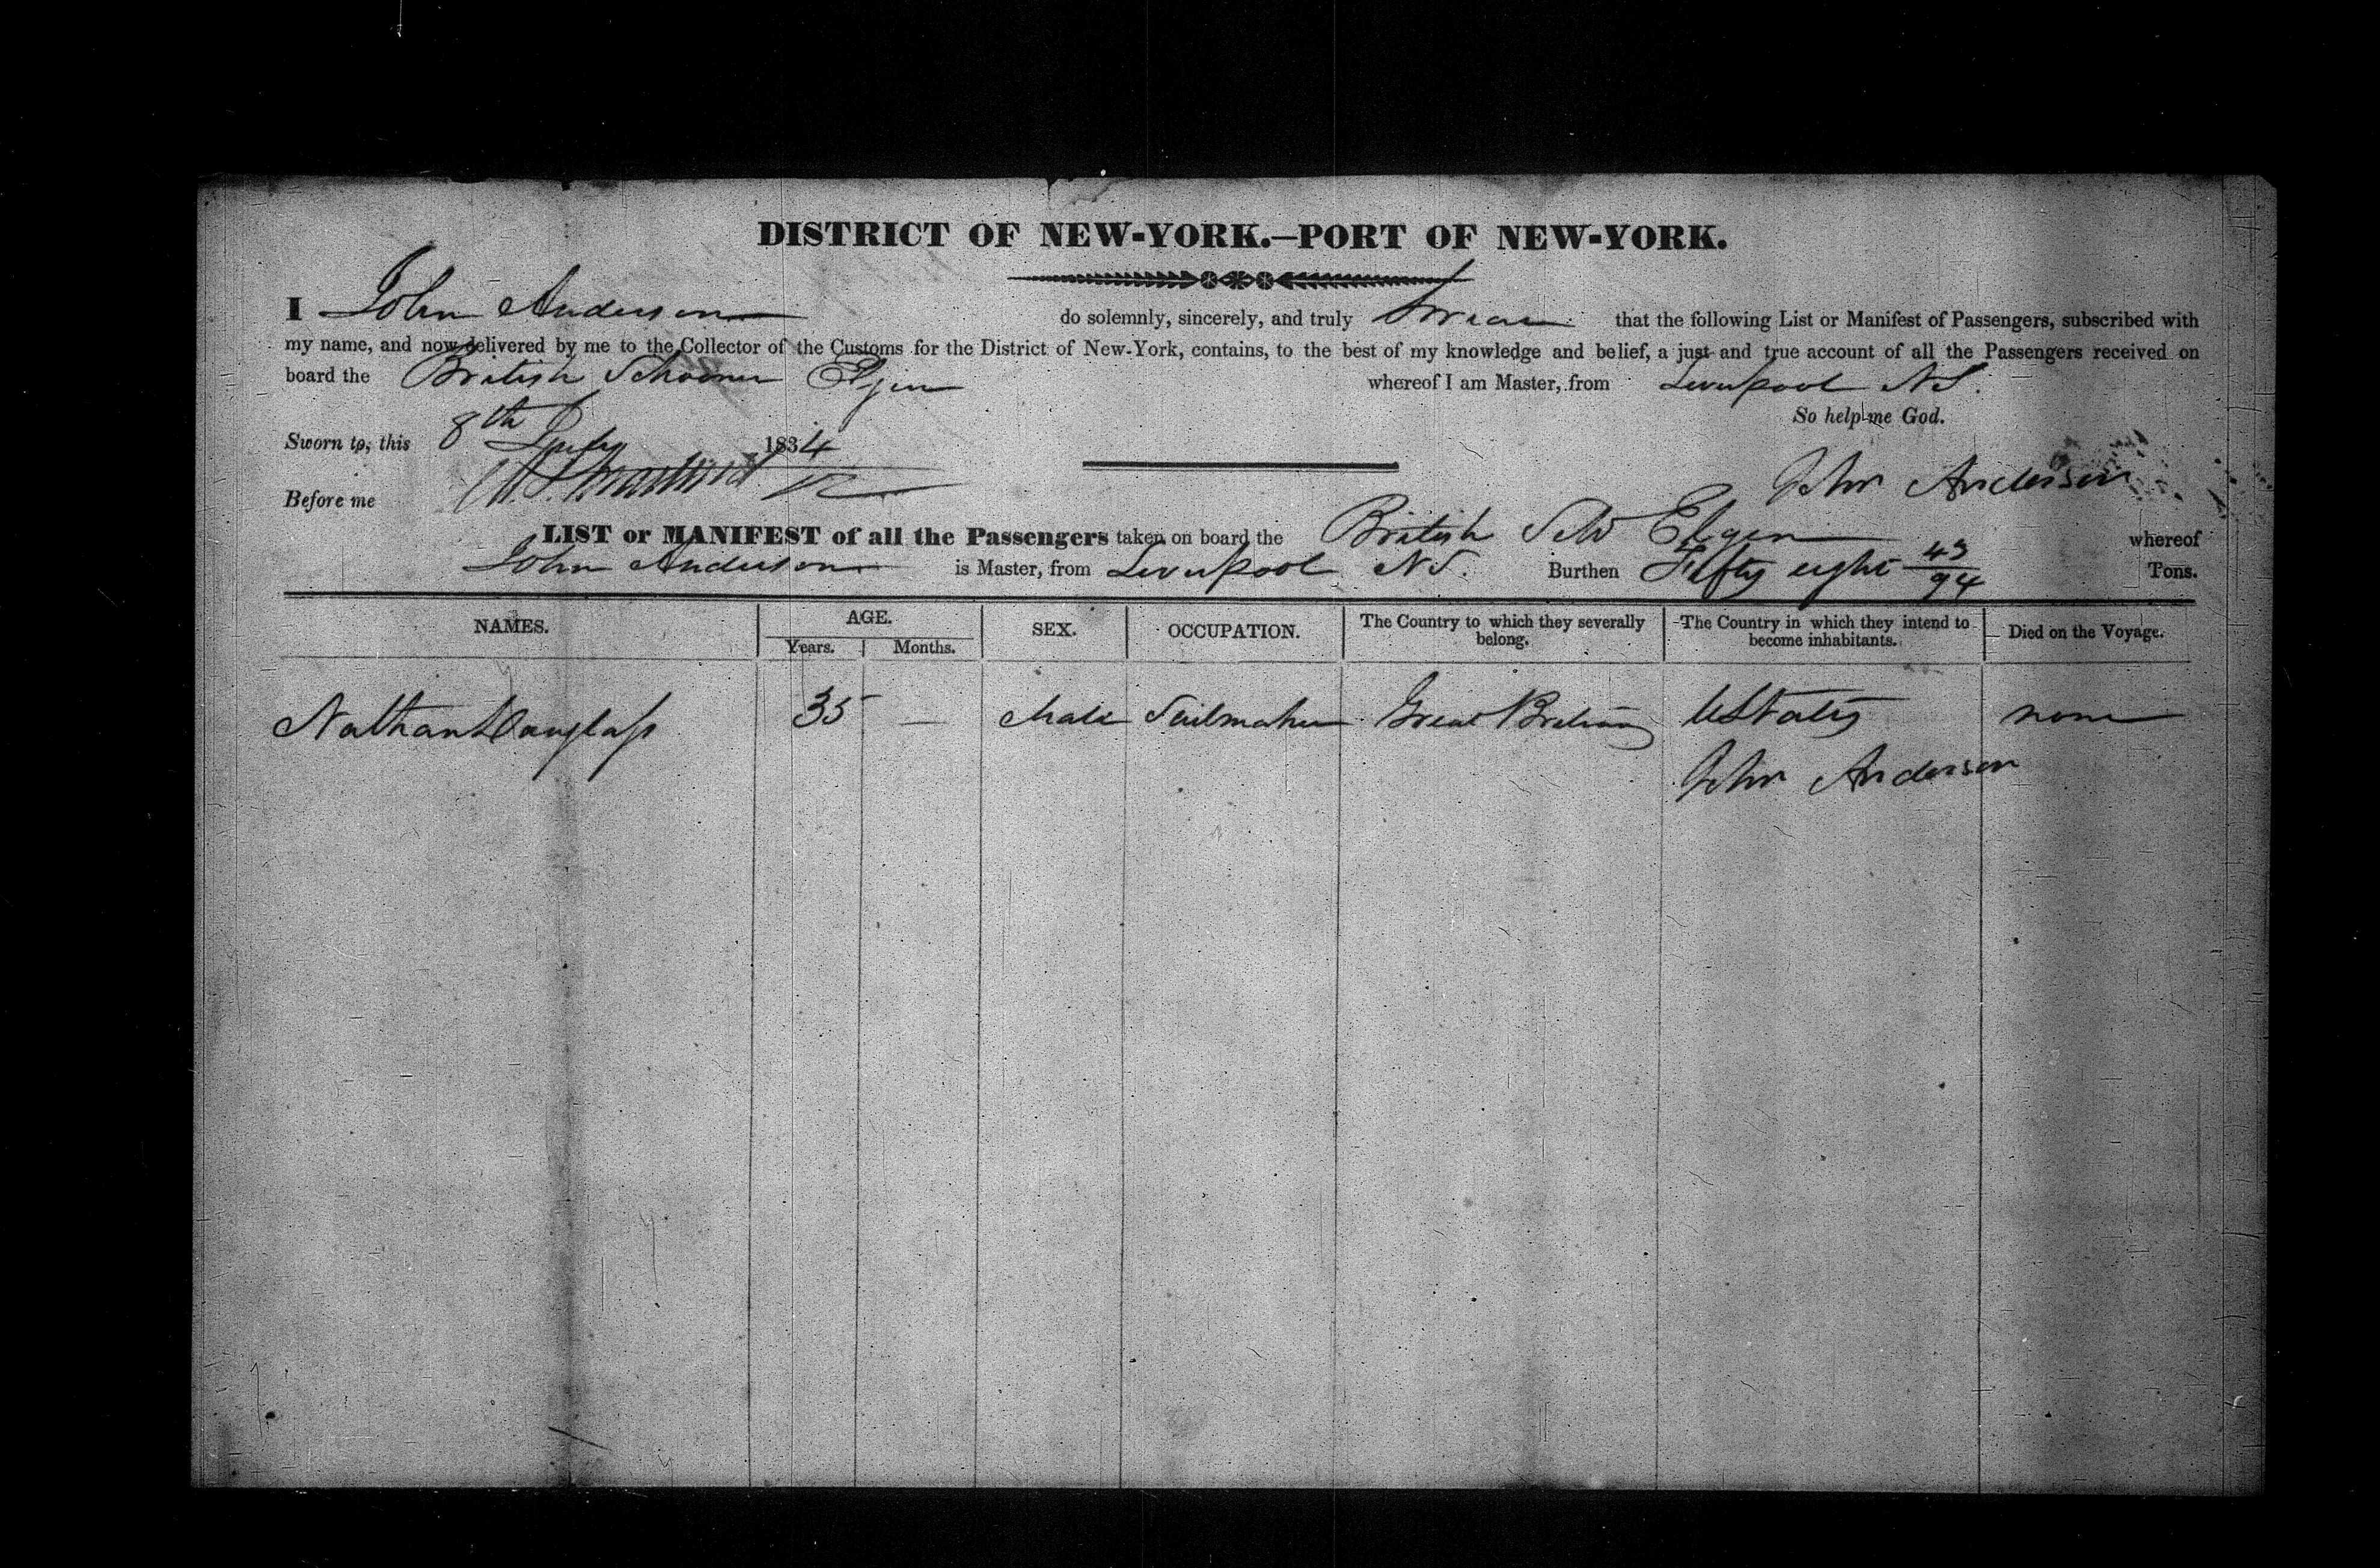 DISTRICT OF NEW-YORK.—PORT OF NEW-YORK.
I John Anderson do solemnly, sincerely, and truly Swear that the following List or Manifest of Passengers, subscribed with
my name, and now delivered by me to the Collector of the Customs for the District of New-York, contains, to the best of my knowledge and belief, a just and true account of all the Passengers received on
board the British Schooner Elgin whereof I am Master, from Liverpool NS.
So help me God.
Sworn to, this 8th July 1834
John Anderson
Before me
LIST or MANIFEST of all the Passengers taken on board the British Sch Elgin whereof
John Anderson is Master, from Liverpool NS. Burthen Fifty eight 43/94 Tons.
NAMES. AGE. SEX. OCCUPATION. The Country to which they severally belong. The Country in which they intend to become inhabitants. Died on the Voyage.
Years. Months.
Nathan Douglass 35 — Male Sailmaker Great Britain UStates none
John Anderson